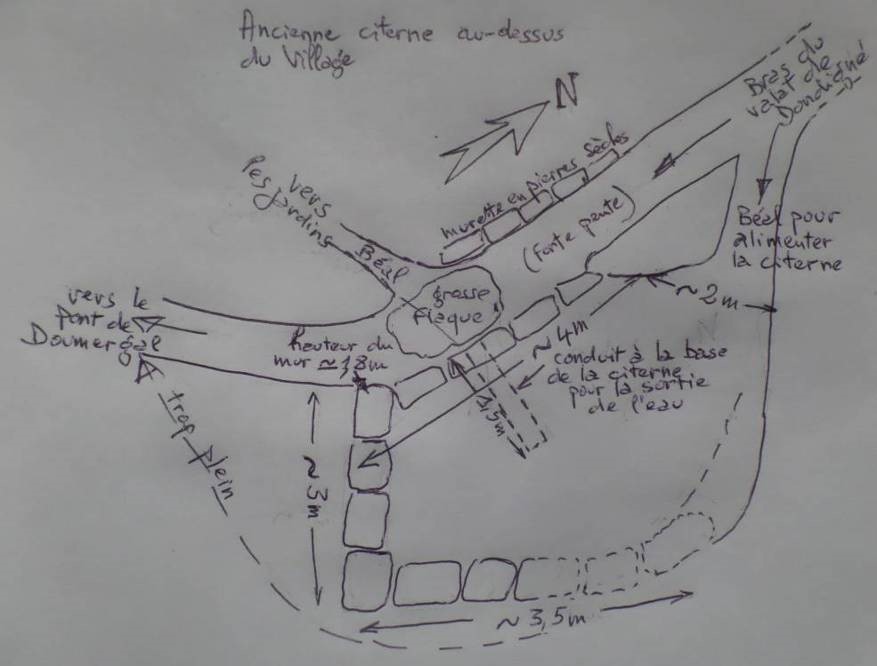 Ancienne citerne au-dessus
du Village
N
Bras du
valat de
Dondigné
vers
les jardins
Béal
murette en pierres sèches
(forte pente)
Béal pour
alimenter
la citerne
~2m
grosse
flaque
vers le
Pont de
Doumergal
hauteur du
mur ≃ 1,8m
~4m
conduit à la base
de la citerne
pour la sortie
de l'eau
1,5m
trop plein
~3m
~3,5m